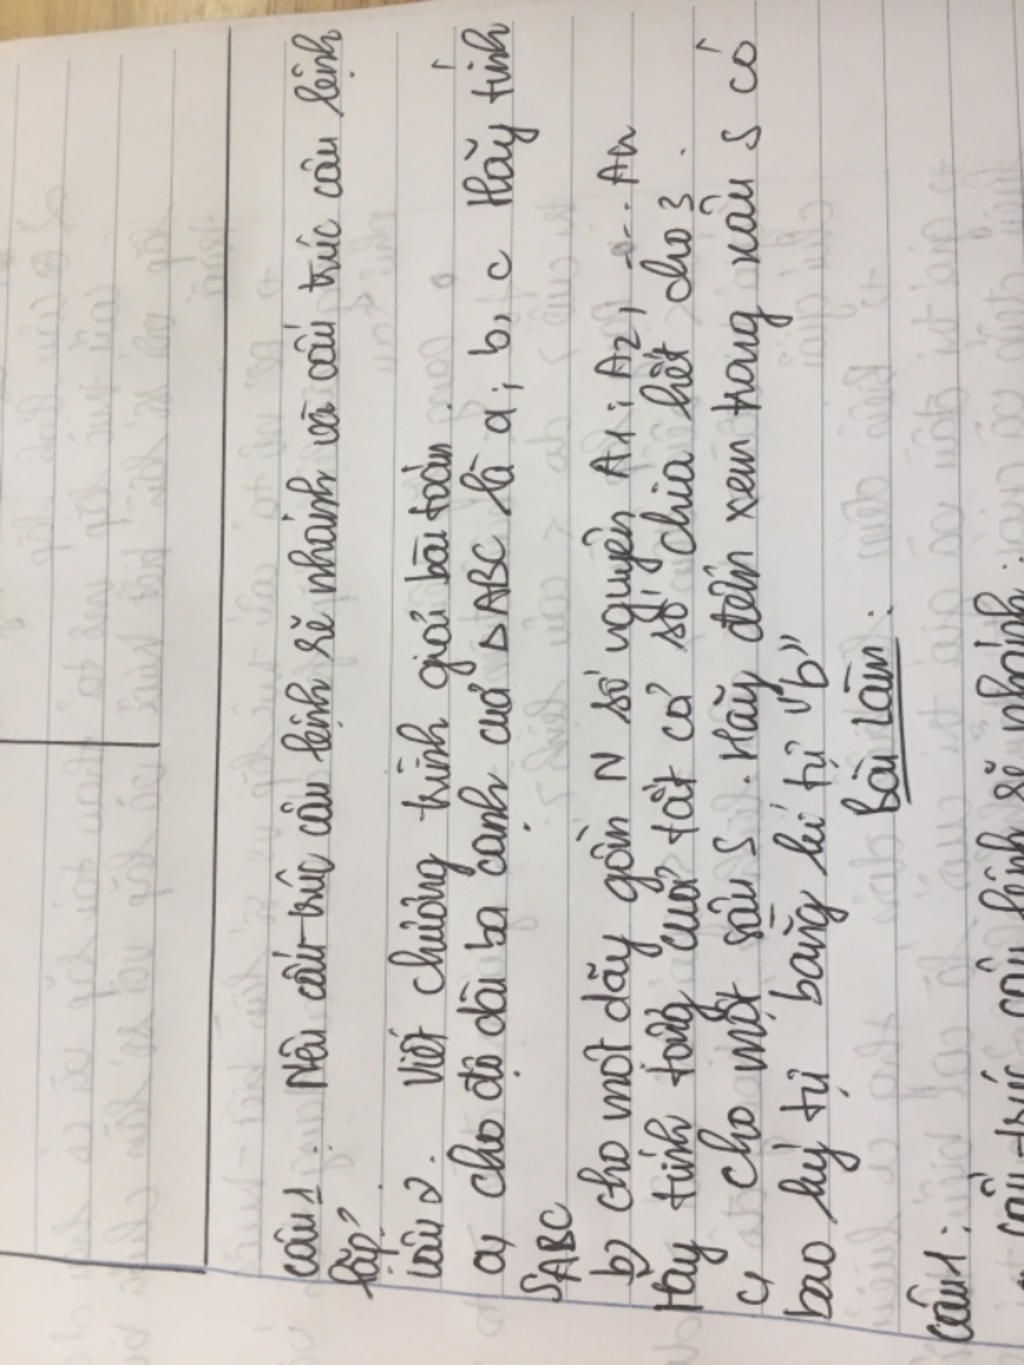 câu 1. Nêu cấu trúc câu lệnh rẽ nhánh và cấu trúc câu lệnh
lặp?
câu 2. Viết chương trình giải bài toán.
a, cho độ dài ba cạnh của △ABC là a; b, c Hãy tính
SABC
b) cho một dãy gồm N số nguyên A1; A2, ... An
Hãy tính tổng của tất cả số chia hết cho 3.
c, Cho một sâu S. Hãy đếm xem trong xâu S có
bao ký tự bằng kí tự "b"
Bài làm:
câu 1:
cấu trúc câu lệnh rẽ nhánh: